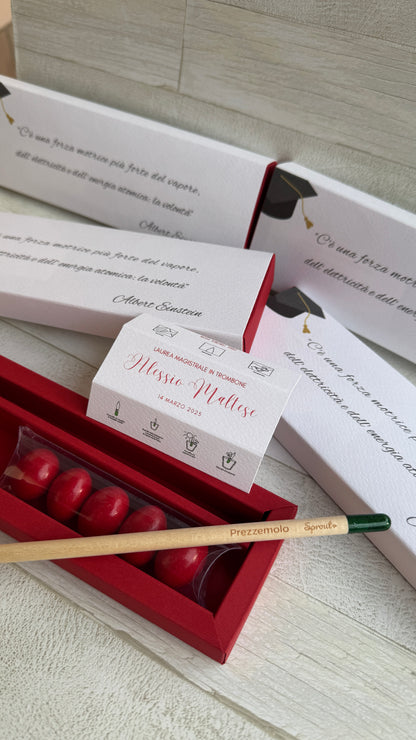 "C'è una forza motrice più forte del vapore,
dell'elettricità e dell'energia atomica: la volontà"
Albert Einstein
"C'è una forza motrice
dell'elettricità e dell'energi
una forza motrice più forte del vapore,
elettricità e dell'energia atomica: la volontà"
Albert Einstein
"C'è una forza
dell'elettricità e dell'energia atomica
LAUREA MAGISTRALE IN TROMBONE
Alessio Maltese
14 MARZO 2025
Prezzemolo Sprout